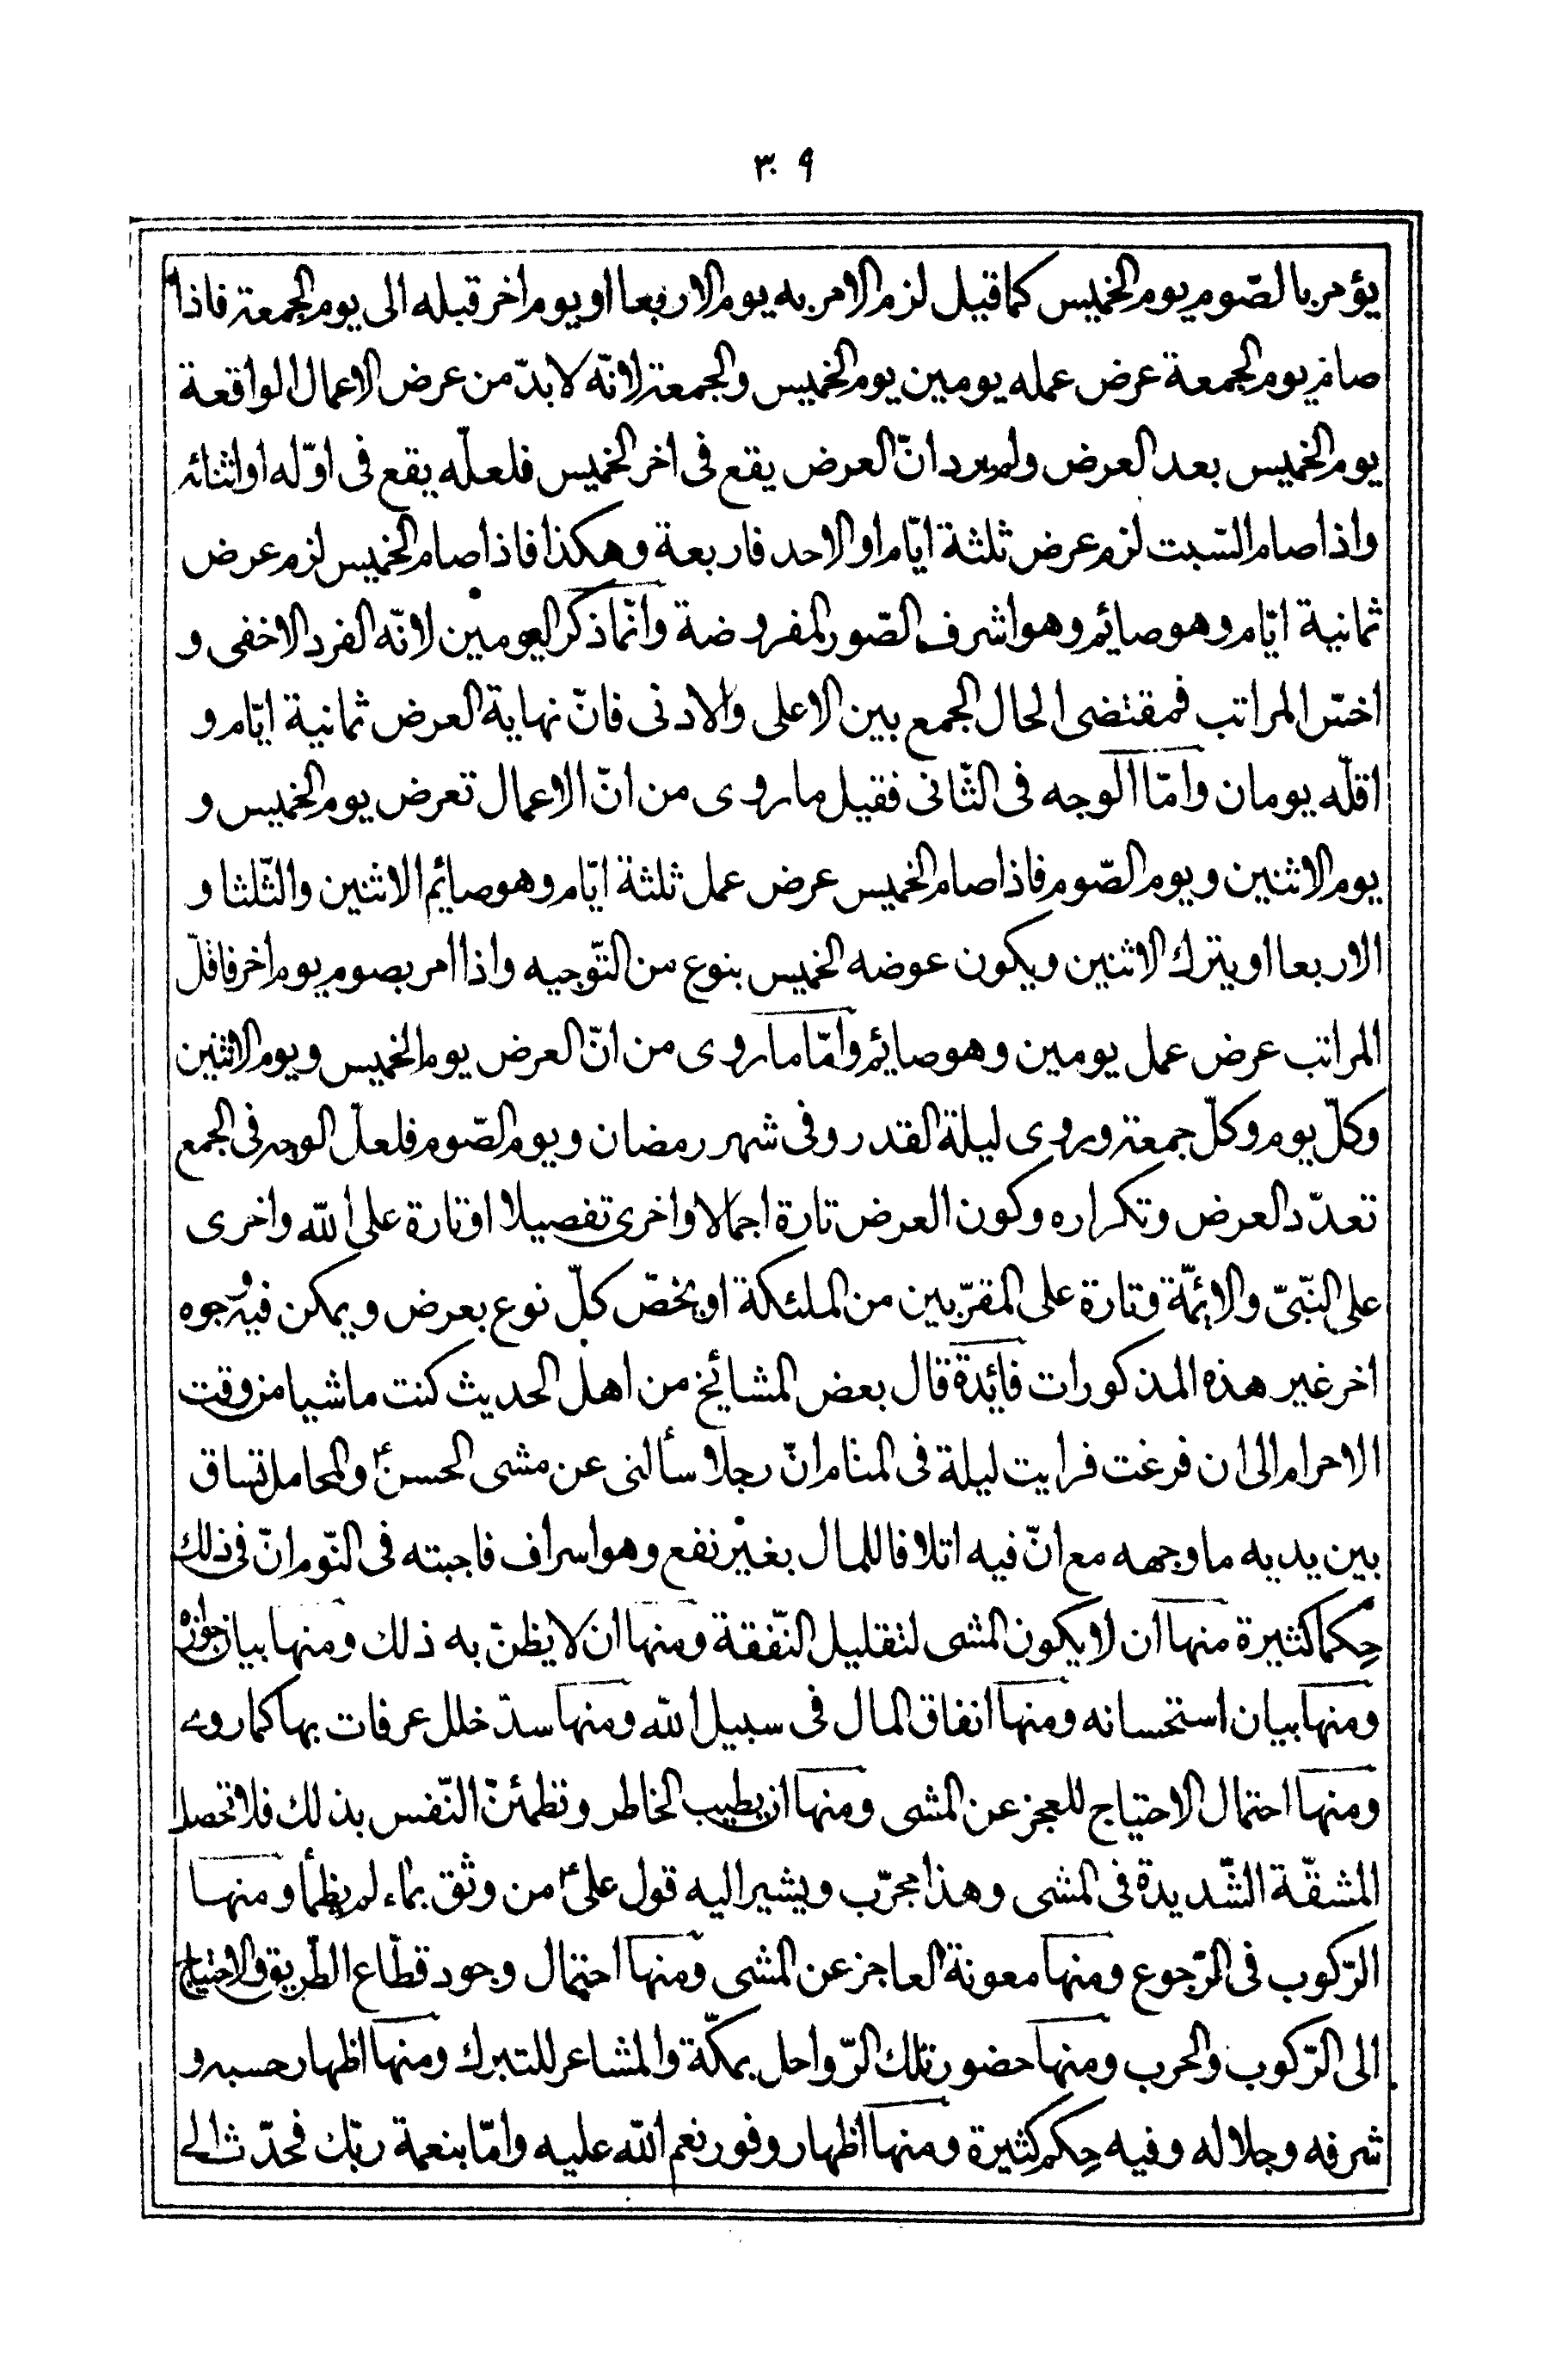 ٣٠٩
يؤمر بالصّوم يوم الخميس كما قيل لزم الامر به يوم الاربعا او يوم اخر قبله الى يوم الجمعة فاذا
صام يوم الجمعة عرض عمله يومين يوم الخميس والجمعة لانّه لا بدّ من عرض الاعمال الواقعة
يوم الخميس بعد العرض ولم يرد انّ العرض يقع فى اخر الخميس فلعلّه يقع فى اوّله او اثنائه
واذا صام السّبت لزم عرض ثلثة ايّام او الاحد فاربعة وهكذا فاذا صام الخميس لزم عرض
ثمانية ايّام وهو صائم وهو اشرف الصّور المفروضة وانّما ذكر اليومين لانّه الفرد الاخفى و
اخسّ المراتب فمقتضى الحال الجمع بين الاعلى والادنى فانّ نهاية العرض ثمانية ايّام و
اقلّه يومان وامّا الوجه فى الثّانى فقيل ما روى من انّ الاعمال تعرض يوم الخميس و
يوم الاثنين ويوم الصّوم فاذا صام الخميس عرض عمل ثلثة ايّام وهو صائم الاثنين والثّلثا و
الاربعا او يترك الاثنين ويكون عوضه الخميس بنوع من التّوجيه واذا امر بصوم يوم اخر فاقلّ
المراتب عرض عمل يومين وهو صائم وامّا ما روى من انّ العرض يوم الخميس ويوم الاثنين
وكلّ يوم وكلّ جمعة وروى ليلة القدر وفى شهر رمضان ويوم الصّوم فلعلّ الوجه فى الجمع
تعدّد العرض وتكراره وكون العرض تارة اجمالا واخرى تفصيلا او تارة على الله واخرى
على النّبىّ والائمّة وتارة على المقرّبين من الملئكة او يخصّ كلّ نوع بعرض ويمكن فيه وجوه
اخر غير هذه المذكورات فائدة قال بعض المشائخ من اهل الحديث كنت ماشيا من وقت
الاحرام الى ان فرغت فرايت ليلة فى المنام انّ رجلا سألنى عن مشى الحسنؑ والمحامل تساق
بين يديه ما وجهه مع انّ فيه اتلافا للمال بغير نفع وهو اسراف فاجبته فى النّوم انّ فى ذلك
حِكما كثيرة منها ان لا يكون المشى لتقليل النّفقة ومنها ان لا يظنّ به ذلك ومنها بيان جوازه
ومنها بيان استحسانه ومنها انفاق المال فى سبيل الله ومنها سدّ خلل عرفات بها كما روى
ومنها احتمال الاحتياج للعجز عن المشى ومنها ان يطيب الخاطر وتطمئنّ النّفس بذلك فلا تحصل
المشقّة الشّديدة فى المشى وهذا مجرّب ويشير اليه قول علىؑ من وثق بماء لم يظمأ ومنها
الرّكوب فى الرّجوع ومنها معونة العاجز عن المشى ومنها احتمال وجود قطّاع الطّريق والاحتياج
الى الرّكوب والحرب ومنها حضور تلك الرّواحل بمكّة والمشاعر للتبرك ومنها اظهار حسبه و
شرفه وجلاله وفيه حِكم كثيرة ومنها اظهار وفور نعم الله عليه وامّا بنعمة ربّك فحدّث الى